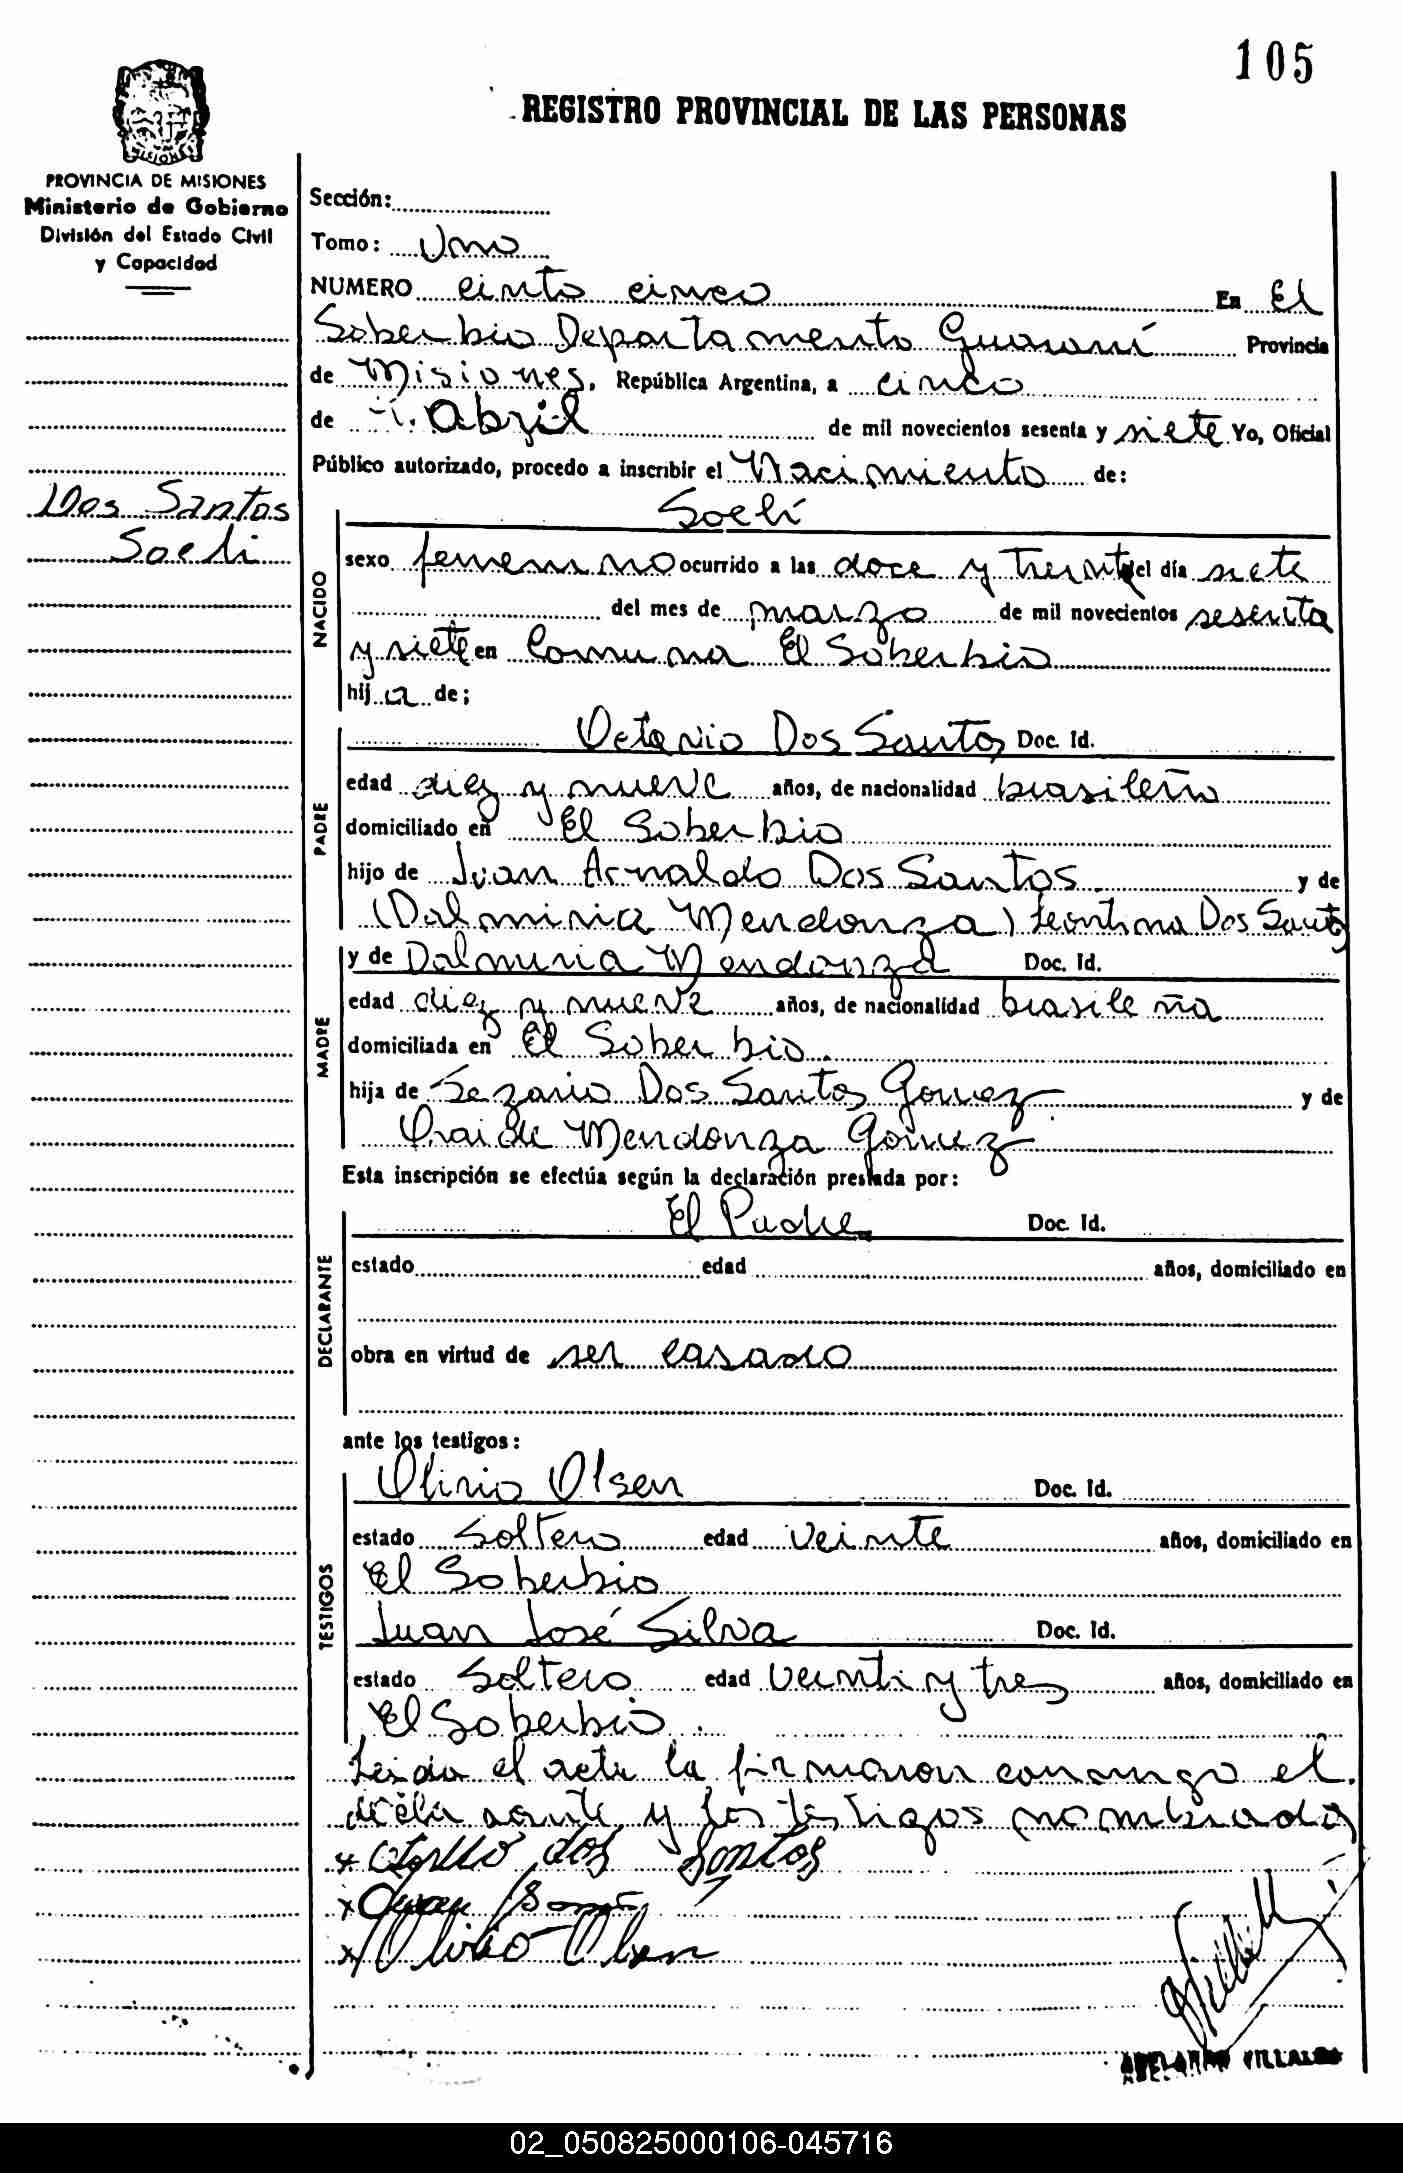 105
REGISTRO PROVINCIAL DE LAS PERSONAS
MISIONES
PROVINCIA DE MISIONES
Ministerio de Gobierno
División del Estado Civil
y Capacidad
Dos Santos
Soeli
Sección:
Tomo: Uno
NUMERO ciento cinco En El
Soberbio Departamento Guaraní Provincia
de Misiones, República Argentina, a cinco
de Abril de mil novecientos sesenta y siete Yo, Oficial
Público autorizado, procedo a inscribir el Nacimiento de:
NACIDO
Soelí
sexo femenino ocurrido a las doce y treinta del día siete
del mes de marzo de mil novecientos sesenta
y siete en Comuna El Soberbio
hija de;
PADRE
Octavio Dos Santos Doc. Id.
edad diez y nueve años, de nacionalidad brasileño
domiciliado en El Soberbio
hijo de Juan Arnaldo Dos Santos y de
(Dalmiria Mendonza) Leontina Dos Santos
MADRE
y de Dalmiria Mendonza Doc. Id.
edad diez y nueve años, de nacionalidad brasileña
domiciliada en El Soberbio.
hija de Sezario Dos Santos Gomez y de
Mendonza Gomez
Esta inscripción se efectúa según la declaración prestada por:
DECLARANTE
El Padre Doc. Id.
estado edad años, domiciliado en
obra en virtud de ser casado
ante los testigos:
TESTIGOS
Olirio Olsen Doc. Id.
estado Soltero edad veinte años, domiciliado en
El Soberbio
Juan José Silva Doc. Id.
estado Soltero edad veinti y tres años, domiciliado en
El Soberbio.
Leida el acta la firmaron conmigo el
declarante y los testigos nombrados
x dos Santos
x Juan
x Olirio Olsen
ADELARDO VILLALBA
02_050825000106-045716